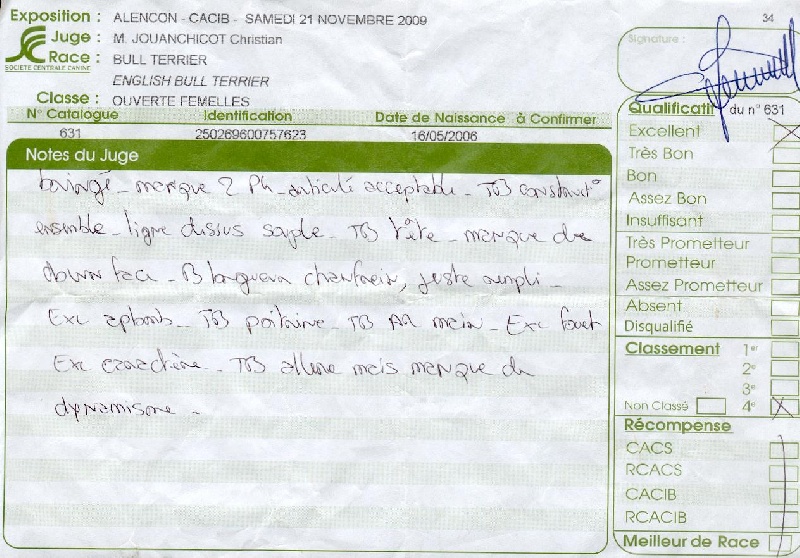 Exposition : ALENCON - CACIB - SAMEDI 21 NOVEMBRE 2009
34
Juge : M. JOUANCHICOT Christian
Race : BULL TERRIER
SOCIÉTÉ CENTRALE CANINE
ENGLISH BULL TERRIER
Classe : OUVERTE FEMELLES
N° Catalogue Identification Date de Naissance à Confirmer
631 250269600757623 16/05/2006
Notes du Juge
bringé - manque 2 PM - denticulé acceptable - TB construct°
ensemble - ligne dessus souple - TB tête - manque de
down face - B longueur chanfrein, juste rempli -
Exc aplombs - TB poitrine - TB AR main - Exc fouet
Exc caractère - TB allure mais manque de
dynamisme -
Signature :
Qualificatif du n° 631
Excellent
Très Bon
Bon
Assez Bon
Insuffisant
Très Prometteur
Prometteur
Assez Prometteur
Absent
Disqualifié
Classement 1er
2e
3e
Non Classé 4e
Récompense
CACS
RCACS
CACIB
RCACIB
Meilleur de Race